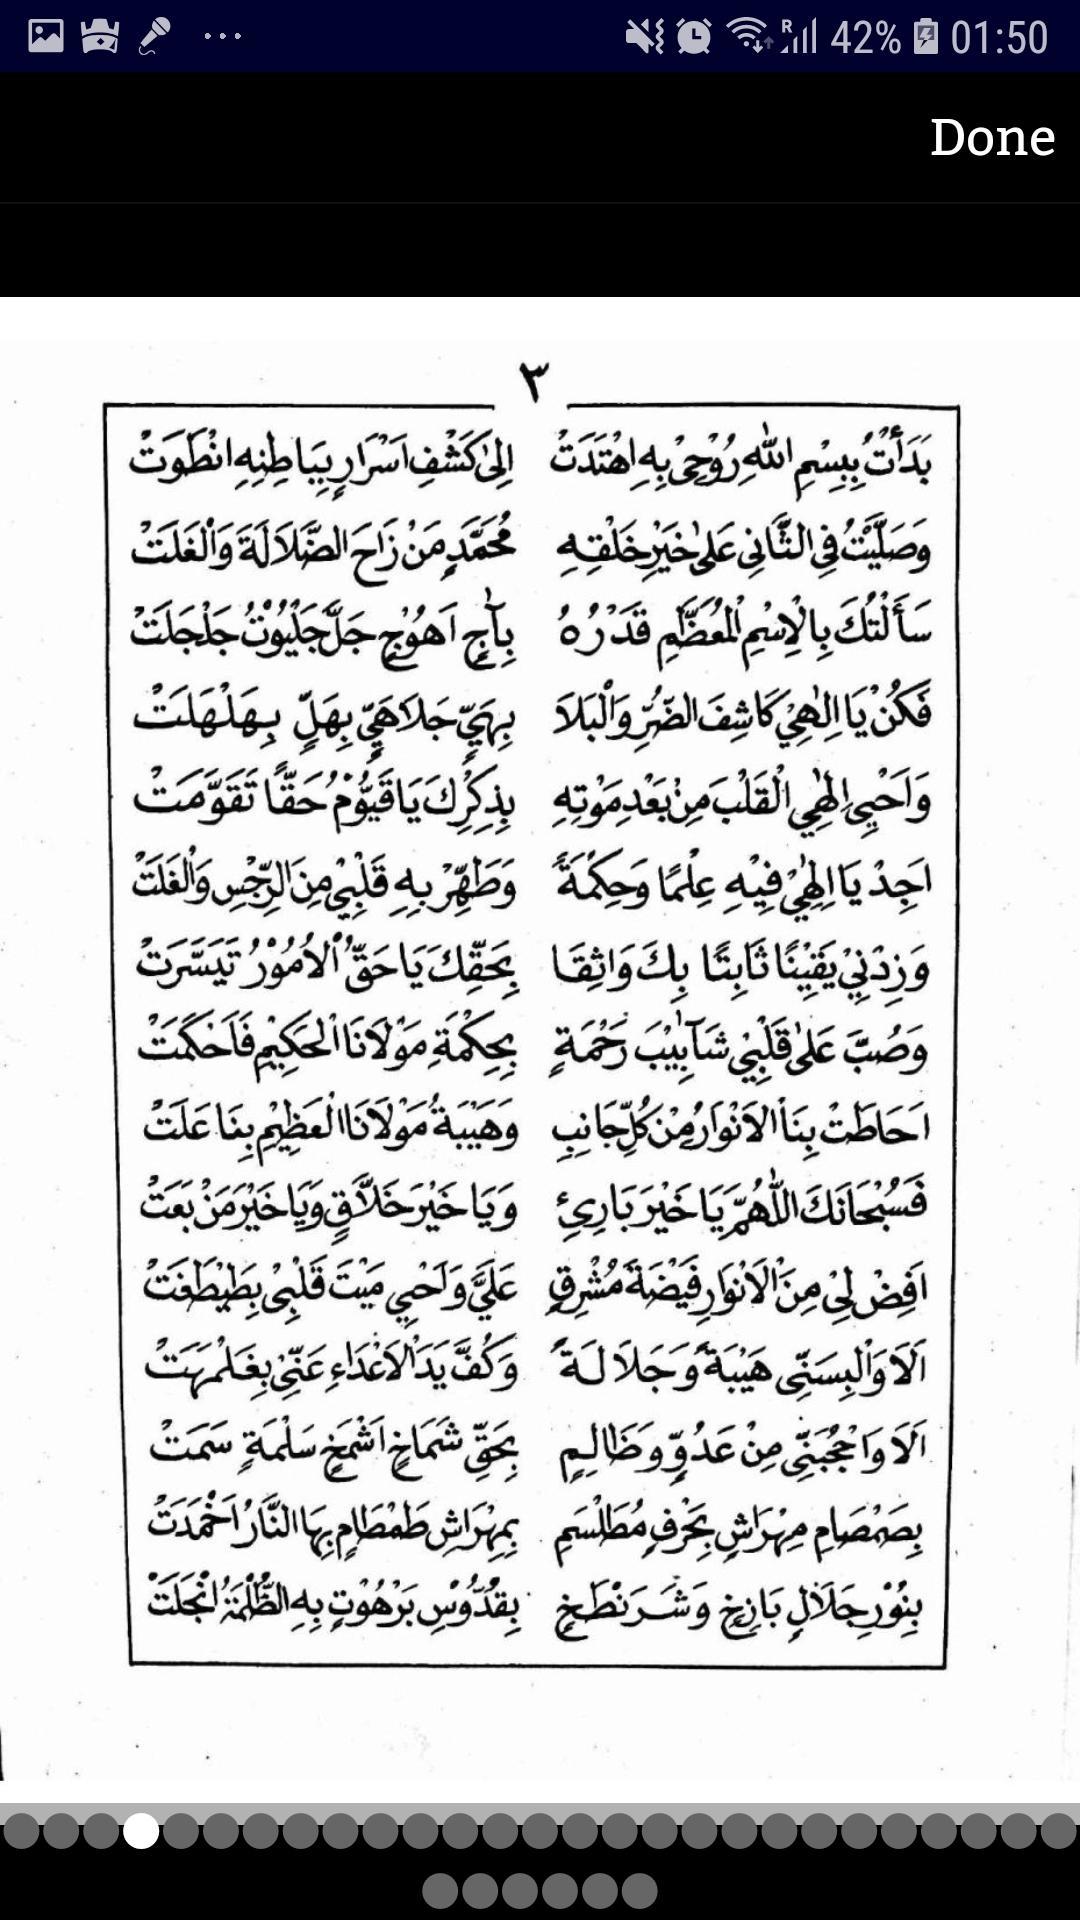 42% 01:50
Done
٣
بَدَأْتُ بِبِسْمِ اللّٰهِ رُوْحِىْ بِهِ اهْتَدَتْ اِلىٰ كَشْفِ اَسْرَارٍ بِبَاطِنِهِ انْطَوَتْ
وَصَلَّيْتُ فِى الثَّانِى عَلىٰ خَيْرِ خَلْقِهِ مُحَمَّدٍ مَنْ زَاحَ الضَّلَالَةَ وَالْغَلَتْ
سَأَلْتُكَ بِالْاِسْمِ الْمُعَظَّمِ قَدْرُهُ بِآجٍ اَهُوْجٍ جَلَّ جَلْيُوْتُ جَلْجَلَتْ
فَكُنْ يَا اِلٰهِيْ كَاشِفَ الضُّرِّ وَالْبَلَا بِهَيٍّ جَلَا هَيٍّ بِهَلٍّ بِهَلْهَلَتْ
وَاَحْيِ اِلٰهِي الْقَلْبَ مِنْ بَعْدِ مَوْتِهِ بِذِكْرِكَ يَا قَيُّوْمُ حَقًّا تَقَوَّمَتْ
اَجِدْ يَا اِلٰهِيْ فِيْهِ عِلْمًا وَحِكْمَةً وَطَهِّرْ بِهِ قَلْبِيْ مِنَ الرِّجْسِ وَالْغَلَتْ
وَزِدْنِيْ يَقِيْنًا ثَابِتًا بِكَ وَاثِقَا بِحَقِّكَ يَا حَقُّ الْاُمُوْرُ تَيَسَّرَتْ
وَصُبَّ عَلىٰ قَلْبِيْ شَآبِيْبَ رَحْمَةٍ بِحِكْمَةِ مَوْلَانَا الْحَكِيْمِ فَاَحْكَمَتْ
اَحَاطَتْ بِنَا الْاَنْوَارُ مِنْ كُلِّ جَانِبِ وَهَيْبَةُ مَوْلَانَا الْعَظِيْمِ بِنَا عَلَتْ
فَسُبْحَانَكَ اللّٰهُمَّ يَا خَيْرَ بَارِئٍ وَيَا خَيْرَ خَلَّاقٍ وَيَا خَيْرَ مَنْ بَعَتْ
اَفِضْ لِىْ مِنَ الْاَنْوَارِ فَيْضَةَ مُشْرِقٍ عَلَيَّ وَاَحْيِ مَيْتَ قَلْبِىْ بِطَيْطَغَتْ
اَلَا وَاَلْبِسَنِّى هَيْبَةً وَجَلَالَةً وَكُفَّ يَدَ الْاَعْدَاءِ عَنِّىْ بِغَلْمَهَتْ
اَلَا وَاحْجُبَنِّى مِنْ عَدُوٍّ وَظَالِمٍ بِحَقِّ شَمَاخٍ اَشْمَخٍ سَلْمَةٍ سَمَتْ
بِصَمْصَامِ مِهْرَاشٍ بِحَرْفٍ مُطَلْسَمِ بِمِهْرَاشِ طَمْطَامٍ بِهَا النَّارُ اَخْمَدَتْ
بِنُوْرِ جَلَالٍ بَازِخٍ وَشَرَنْطَخٍ بِقُدُّوْسِ بَرْهُوْتٍ بِهِ الظُّلْمَةُ انْجَلَتْ